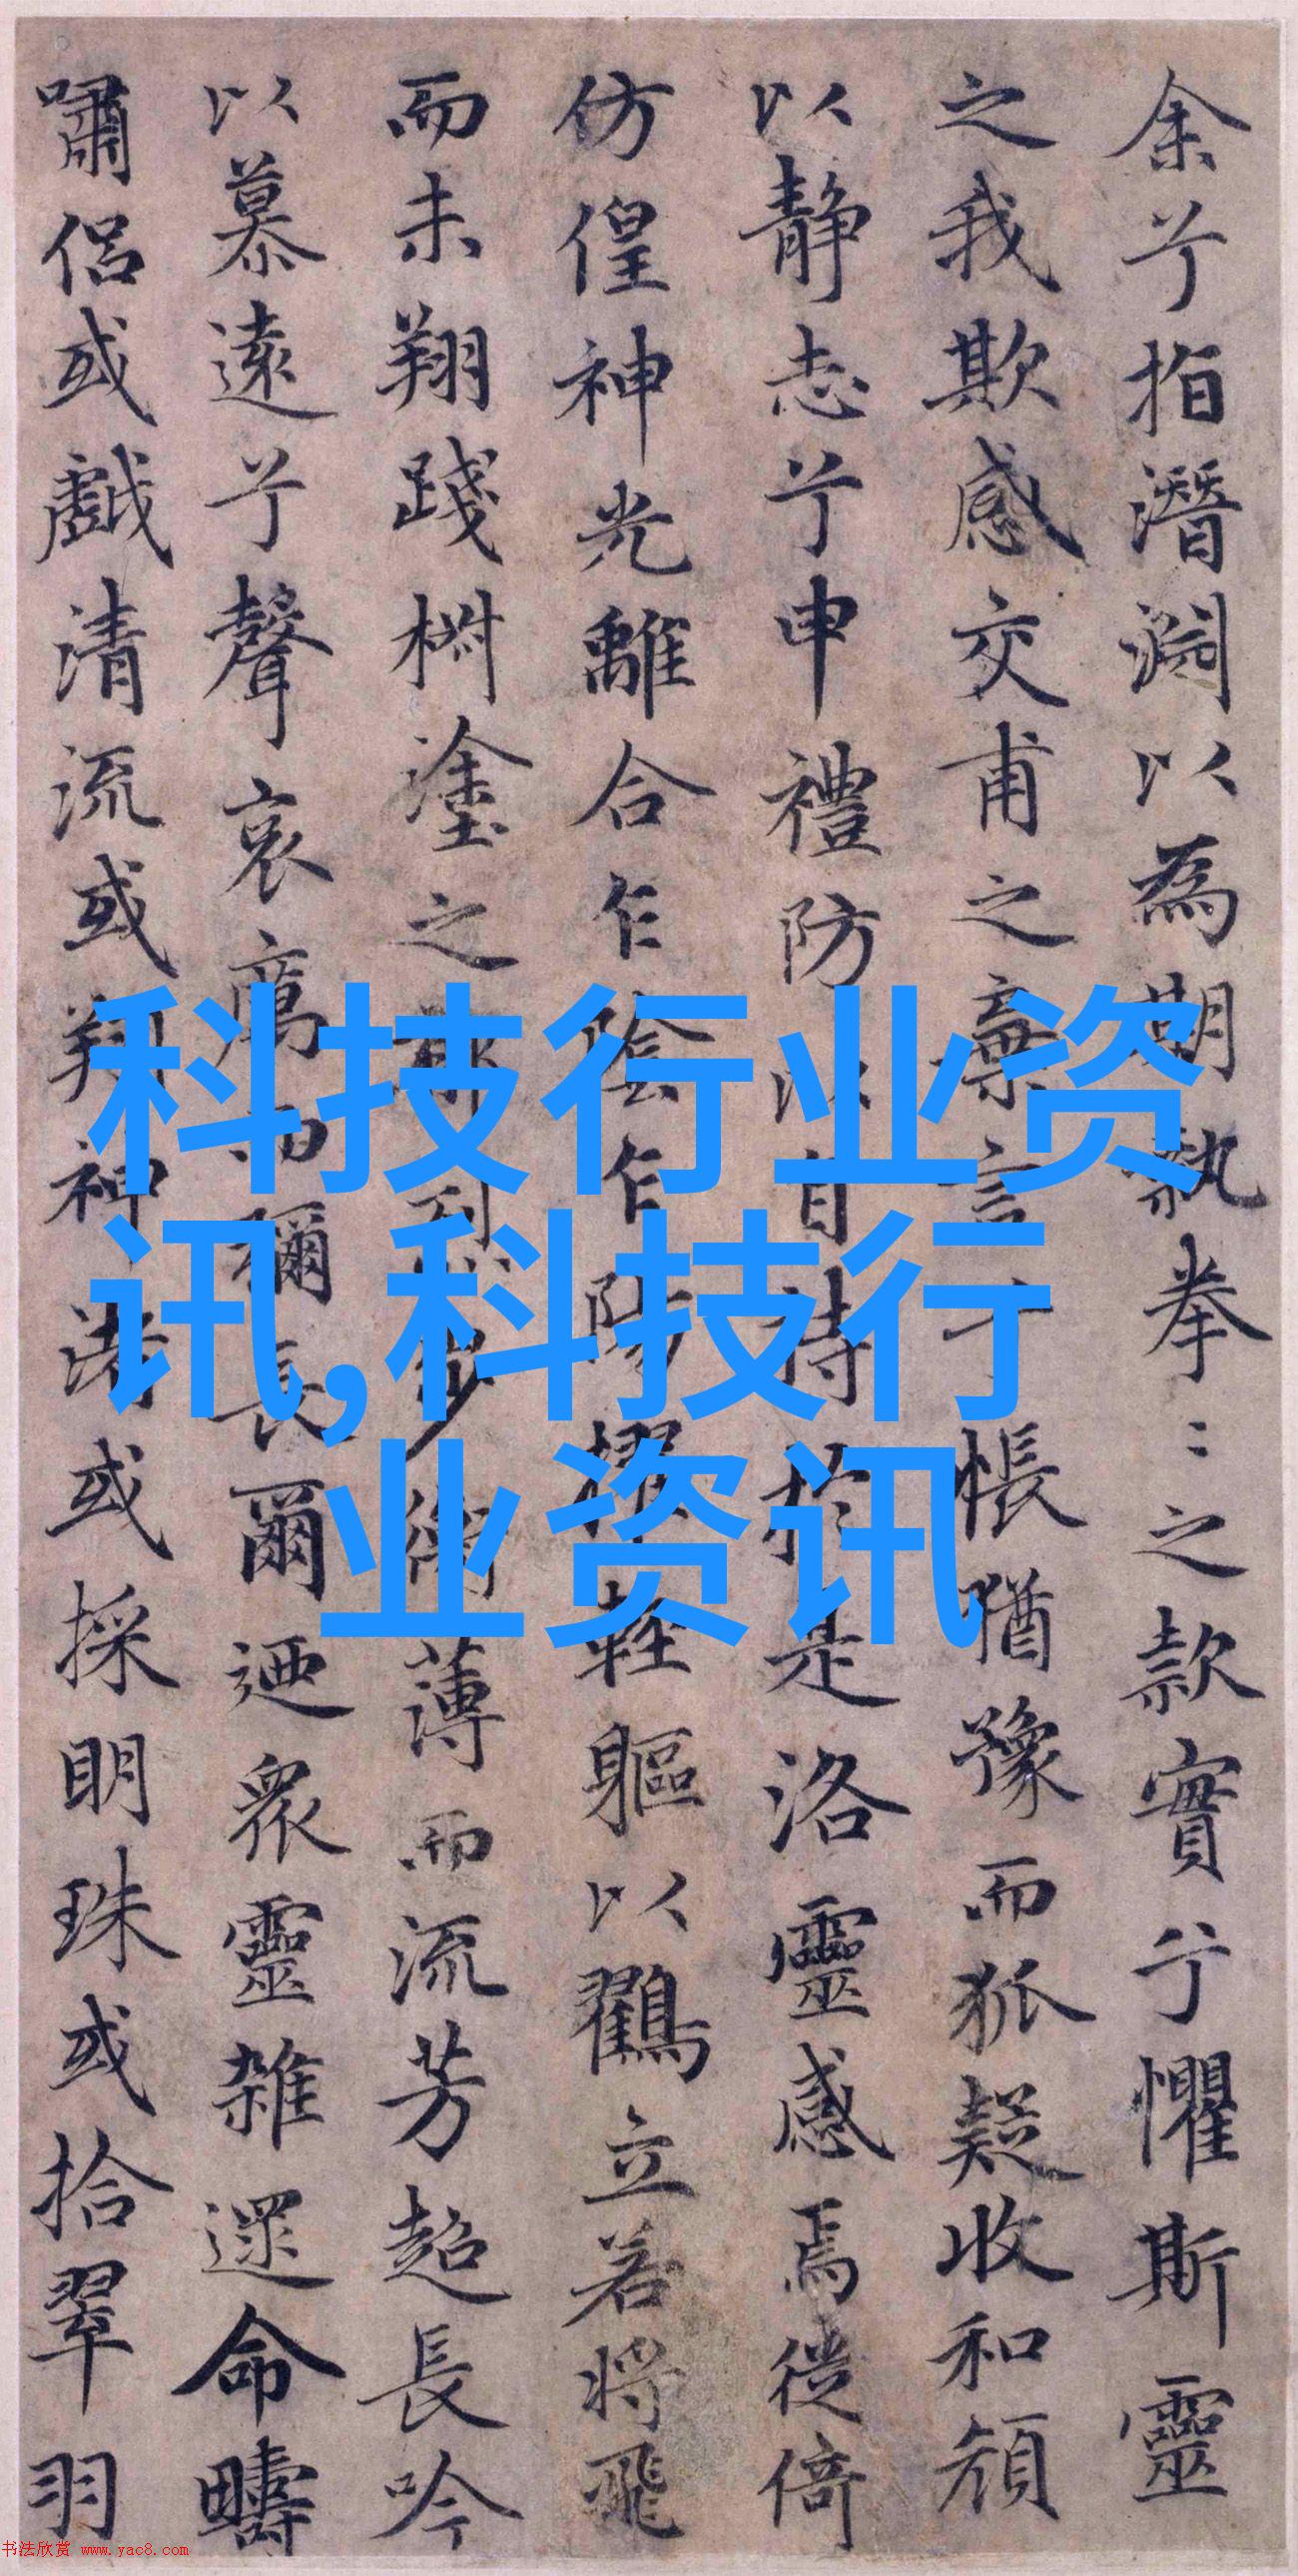 余兮指潛淵以為期執拳〻之款實兮懼斯靈
之我欺感交甫之棄言 悵猶豫而狐疑收和顏
以靜志兮申禮防以自持於是洛靈感焉徙倚
仿偟神光離合乍陰乍陽 輕軀以鶴立若将飛
而未翔踐椒塗之 烈步 薄而流芳超長吟
以慕遠兮聲哀厲而彌長爾迺衆靈雜遝命疇
嘯侶或戲清流或翔神渚或採明珠或拾翠羽
科技行业资
讯,科技行
业资讯
书法欣赏 www.yac8.com